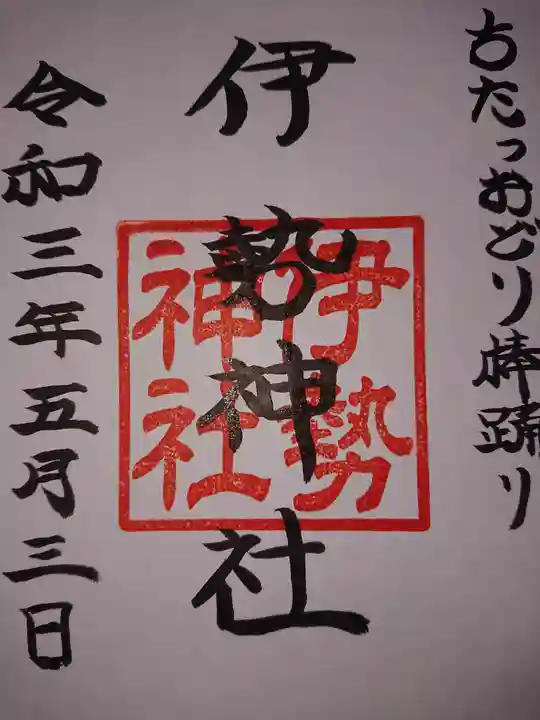 ちたっおどり棒踊り
伊勢神社
伊勢神社
令和三年五月三日